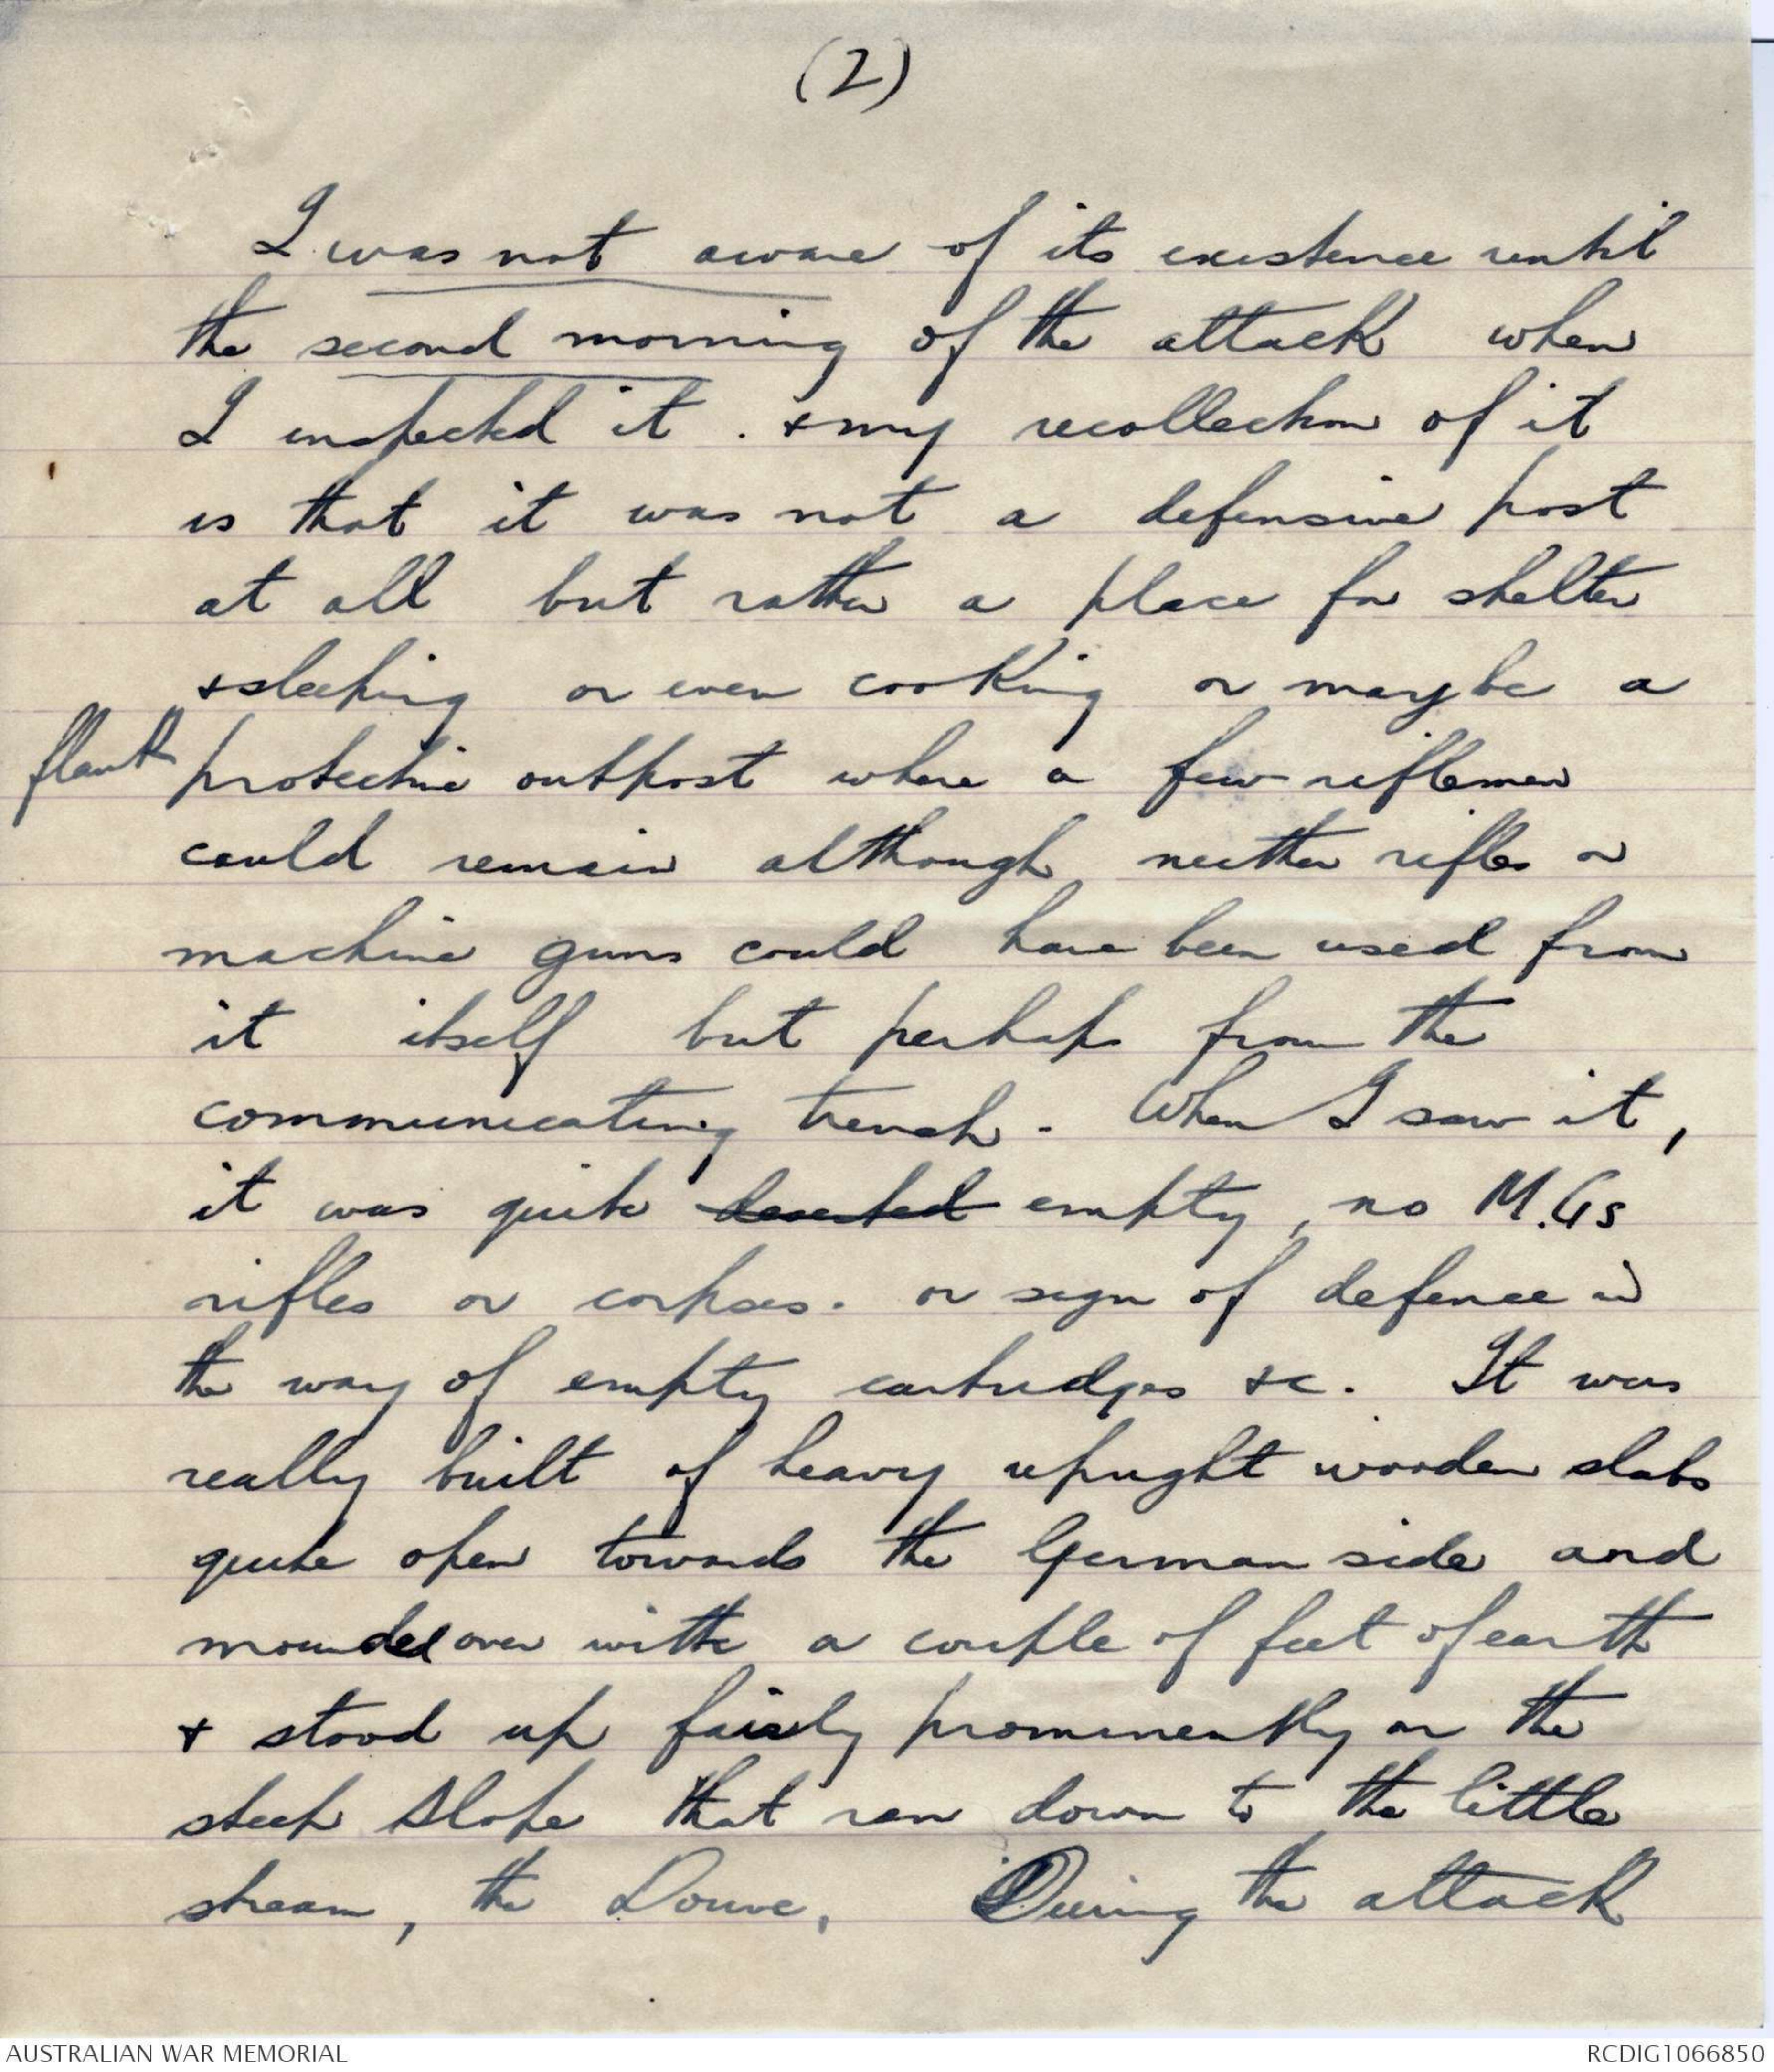 (2)
I was not aware of its existence until
the second morning of the attack when
I inspected it. & my recollection of it
is that it was not a defensive post
at all but rather a place for shelter
& sleeping or even cooking or maybe a
flank protective outpost where a few riflemen
could remain although neither rifles or
machine guns could have been used from
it itself but perhaps from the
communicating trench. When I saw it,
it was quite deserted empty, no M.Gs
rifles or corpses. or sign of defence in
the way of empty cartridges &c. It was
really built of heavy upright wooden slabs
quite open towards the German side and
mounded over with a couple of feet of earth
& stood up fairly prominently on the
steep slope that ran down to the little
stream, the Douve. During the attack
AUSTRALIAN WAR MEMORIAL
RCDIG1066850